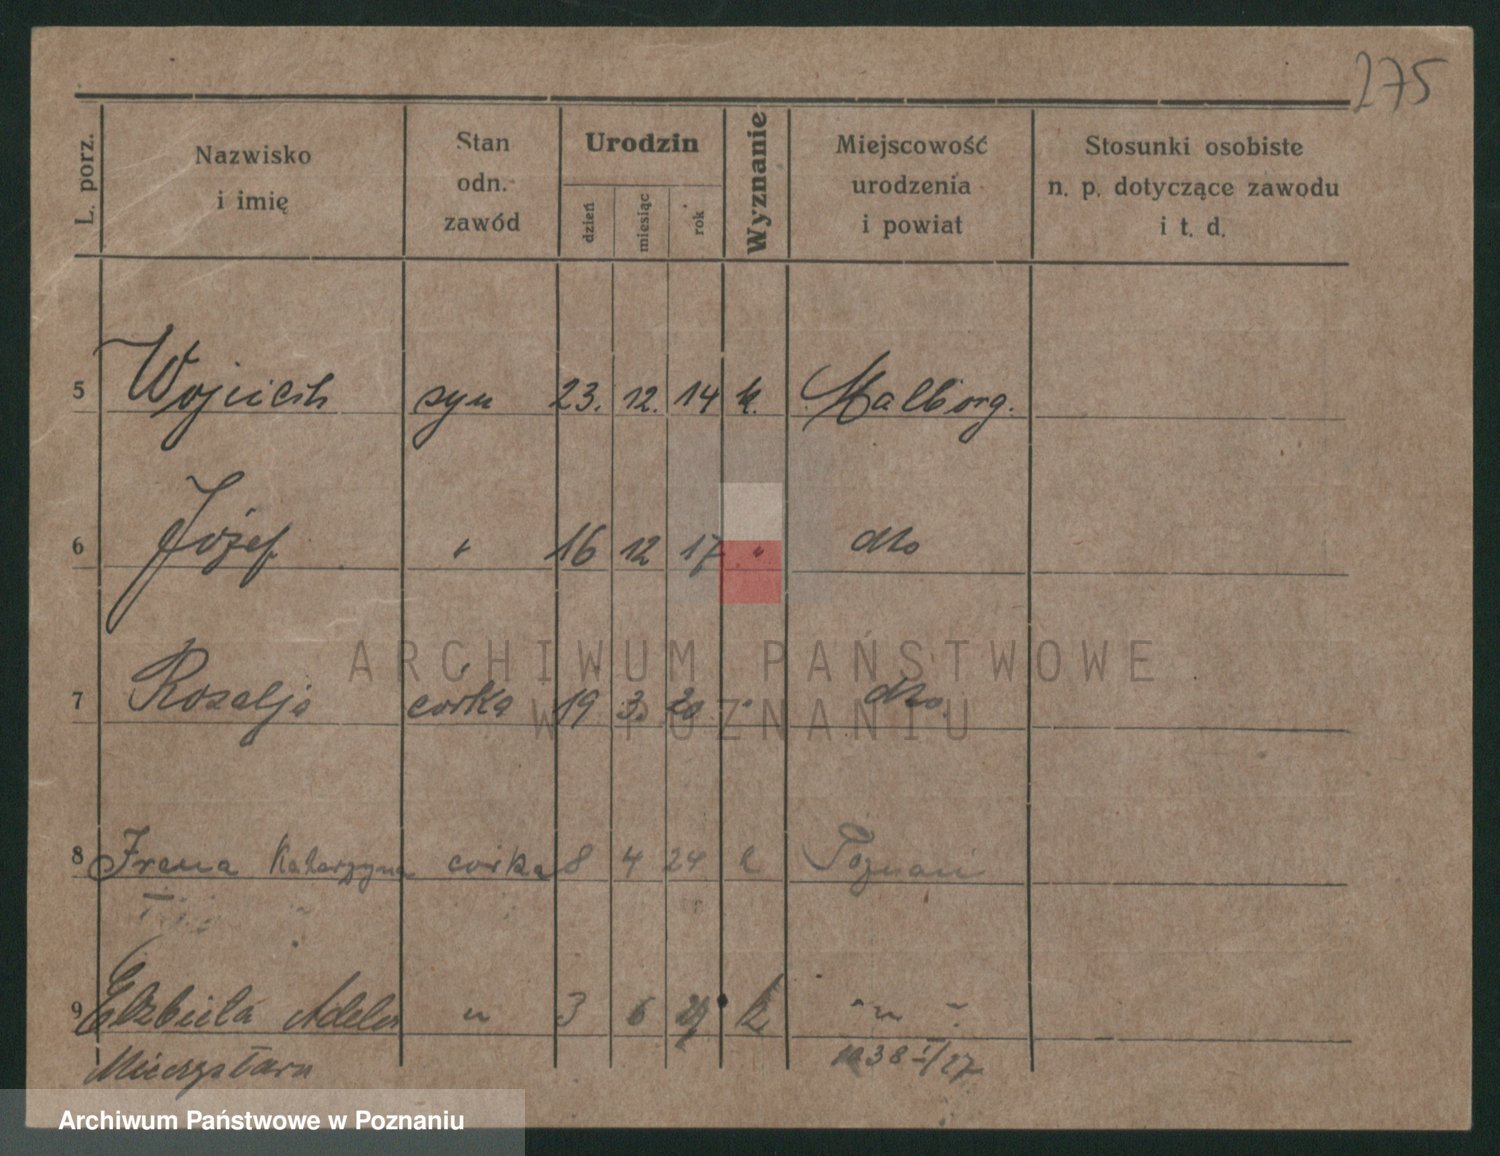 275
L. porz.
Nazwisko
i imię
Stan
odn.
zawód
Urodzin
dzień
miesiąc
rok
Wyznanie
Miejscowość
urodzenia
i powiat
Stosunki osobiste
n. p. dotyczące zawodu
i t. d.
5 Wojciech syn 23. 12. 14 k. Malborg.
6 Józef " 16 12 17 " dto
ARCHIWUM PAŃSTWOWE
7 Rozalja córka 19 3. 20 " dto.
W POZNANIU
8 Irena Katarzyna córka 8 4 24 k Poznań
9 Elżbieta Adela " 3 6 k " "
Mieczysława
Archiwum Państwowe w Poznaniu